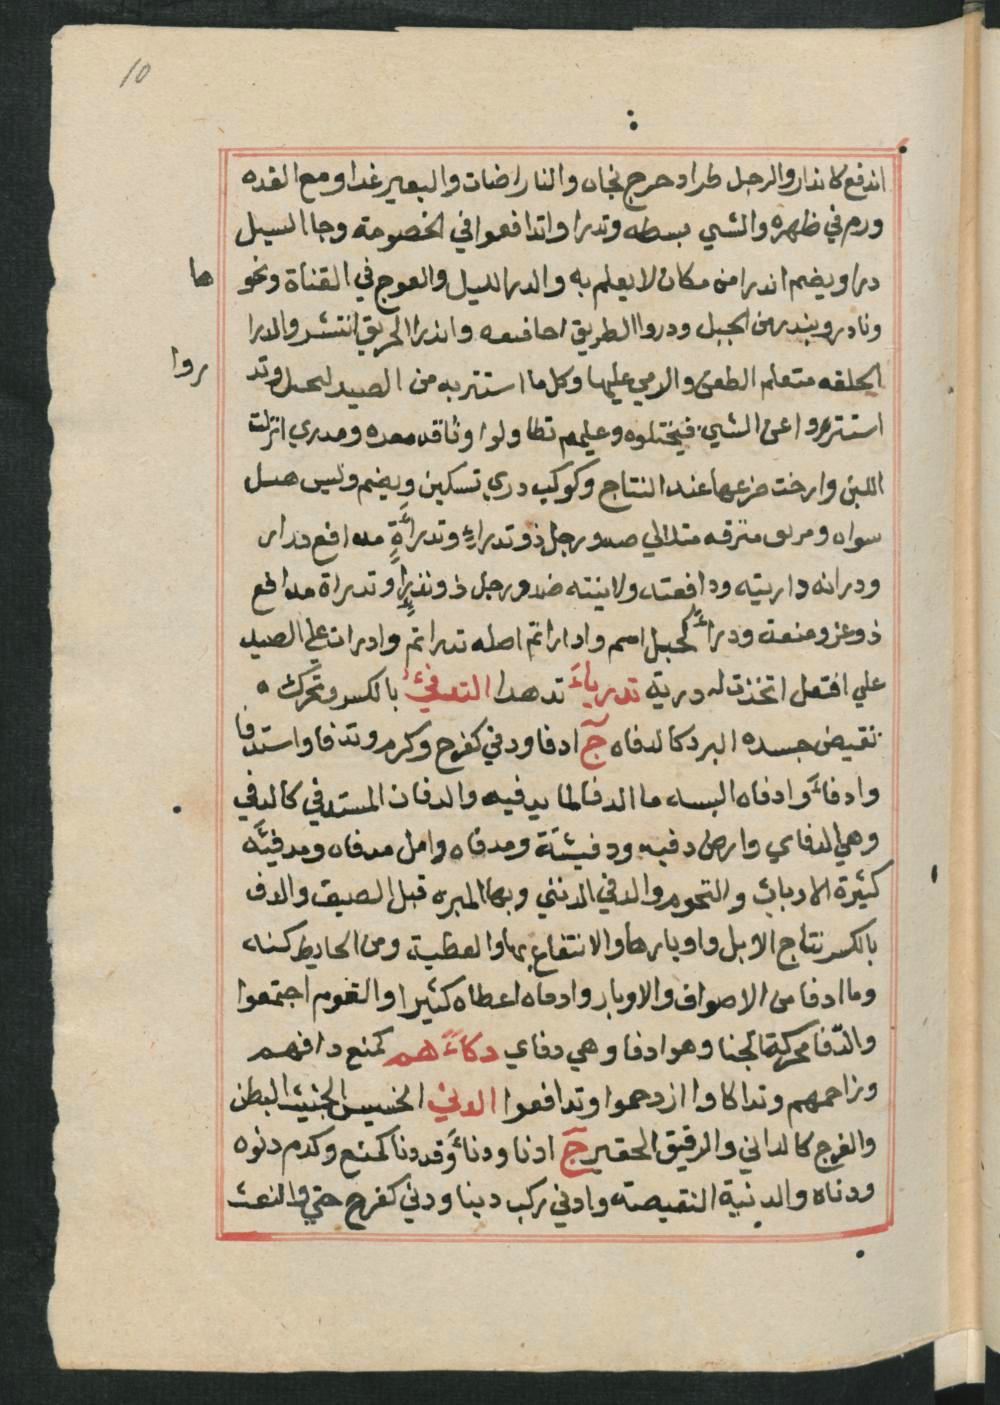 10
اندفع كاندار والرجل طرا وخرج نجاه والنار اضات والبعير غدا ومع الغده
ورم في ظهره والشي بسطه وتدراوا تدافعوا في الخصومة وجا السيل
درا ويضم اندرا من مكان لا يعلم به والدر الميل والعوج في القناة ونحو
ها
ونادر ويندر من الجبل ودروا الطريق اخاقيقه واندرا الحريق انتشر والدرا
الحلقه متعلم الطعن والرمي عليها وكل ما استتر به من الصيد ليختل وتد
روا
استتروا عن الشي فيختلوه وعليهم تطاولوا وناقه معده ومدري انزلت
اللبن وارخت ضرعها عند النتاج وكوكب دري تسكين ويضم وليس
سواه ومر متلالي رجل ذو تدراء وتدراة مدافع
ودرانه داريته ودافعته ولاينته ضد ورجل ذو وتدراة مدافع
ذو عز ومنعة ودراء كجبل اسم وادارا تم اصله تدرا تم وادرات علي الصيد
علي افتعل اتخذت له درية تدرباء تدهدا الدفئ بالكسر وتحرك
نقيض حسده البرد كالدفاه ج ادفا ودفي كفرح وكرم وتدفا واستدفا
وادفاء وادفاه البسه ما الدفا لما يدفيه والدفان المستدفي كالدفي
وهي الدفاي وارض دفيه ودفيئة ومدفاه وابل مدفاه ومدفية
كثيرة الاوبار والشحوم والدفي الدنني وبها الميره قبل الصيف والدف
بالكسر نتاج الابل واوبارها والانتفاع بها والعطية ومن الحايط كنه
وما ادفا من الاصواف والاوبار وادفاه اعطاه كثيرا والقوم اجتمعوا
والدفا محركة الجنا وهو ادفا وهي دفاي دكاءهم كمنع دافعهم
وزاحمهم وتداكاوا ازدحموا وتدافعوا الدني الخسيس الخبيث البطن
والفرج كالداني والدقيق الحقير ج ادنا ودناء وقد دنا كمنع وكرم دنوه
ودناه والدنية النقيصة وادني ركب دينا ودني كفرح حني والنعت